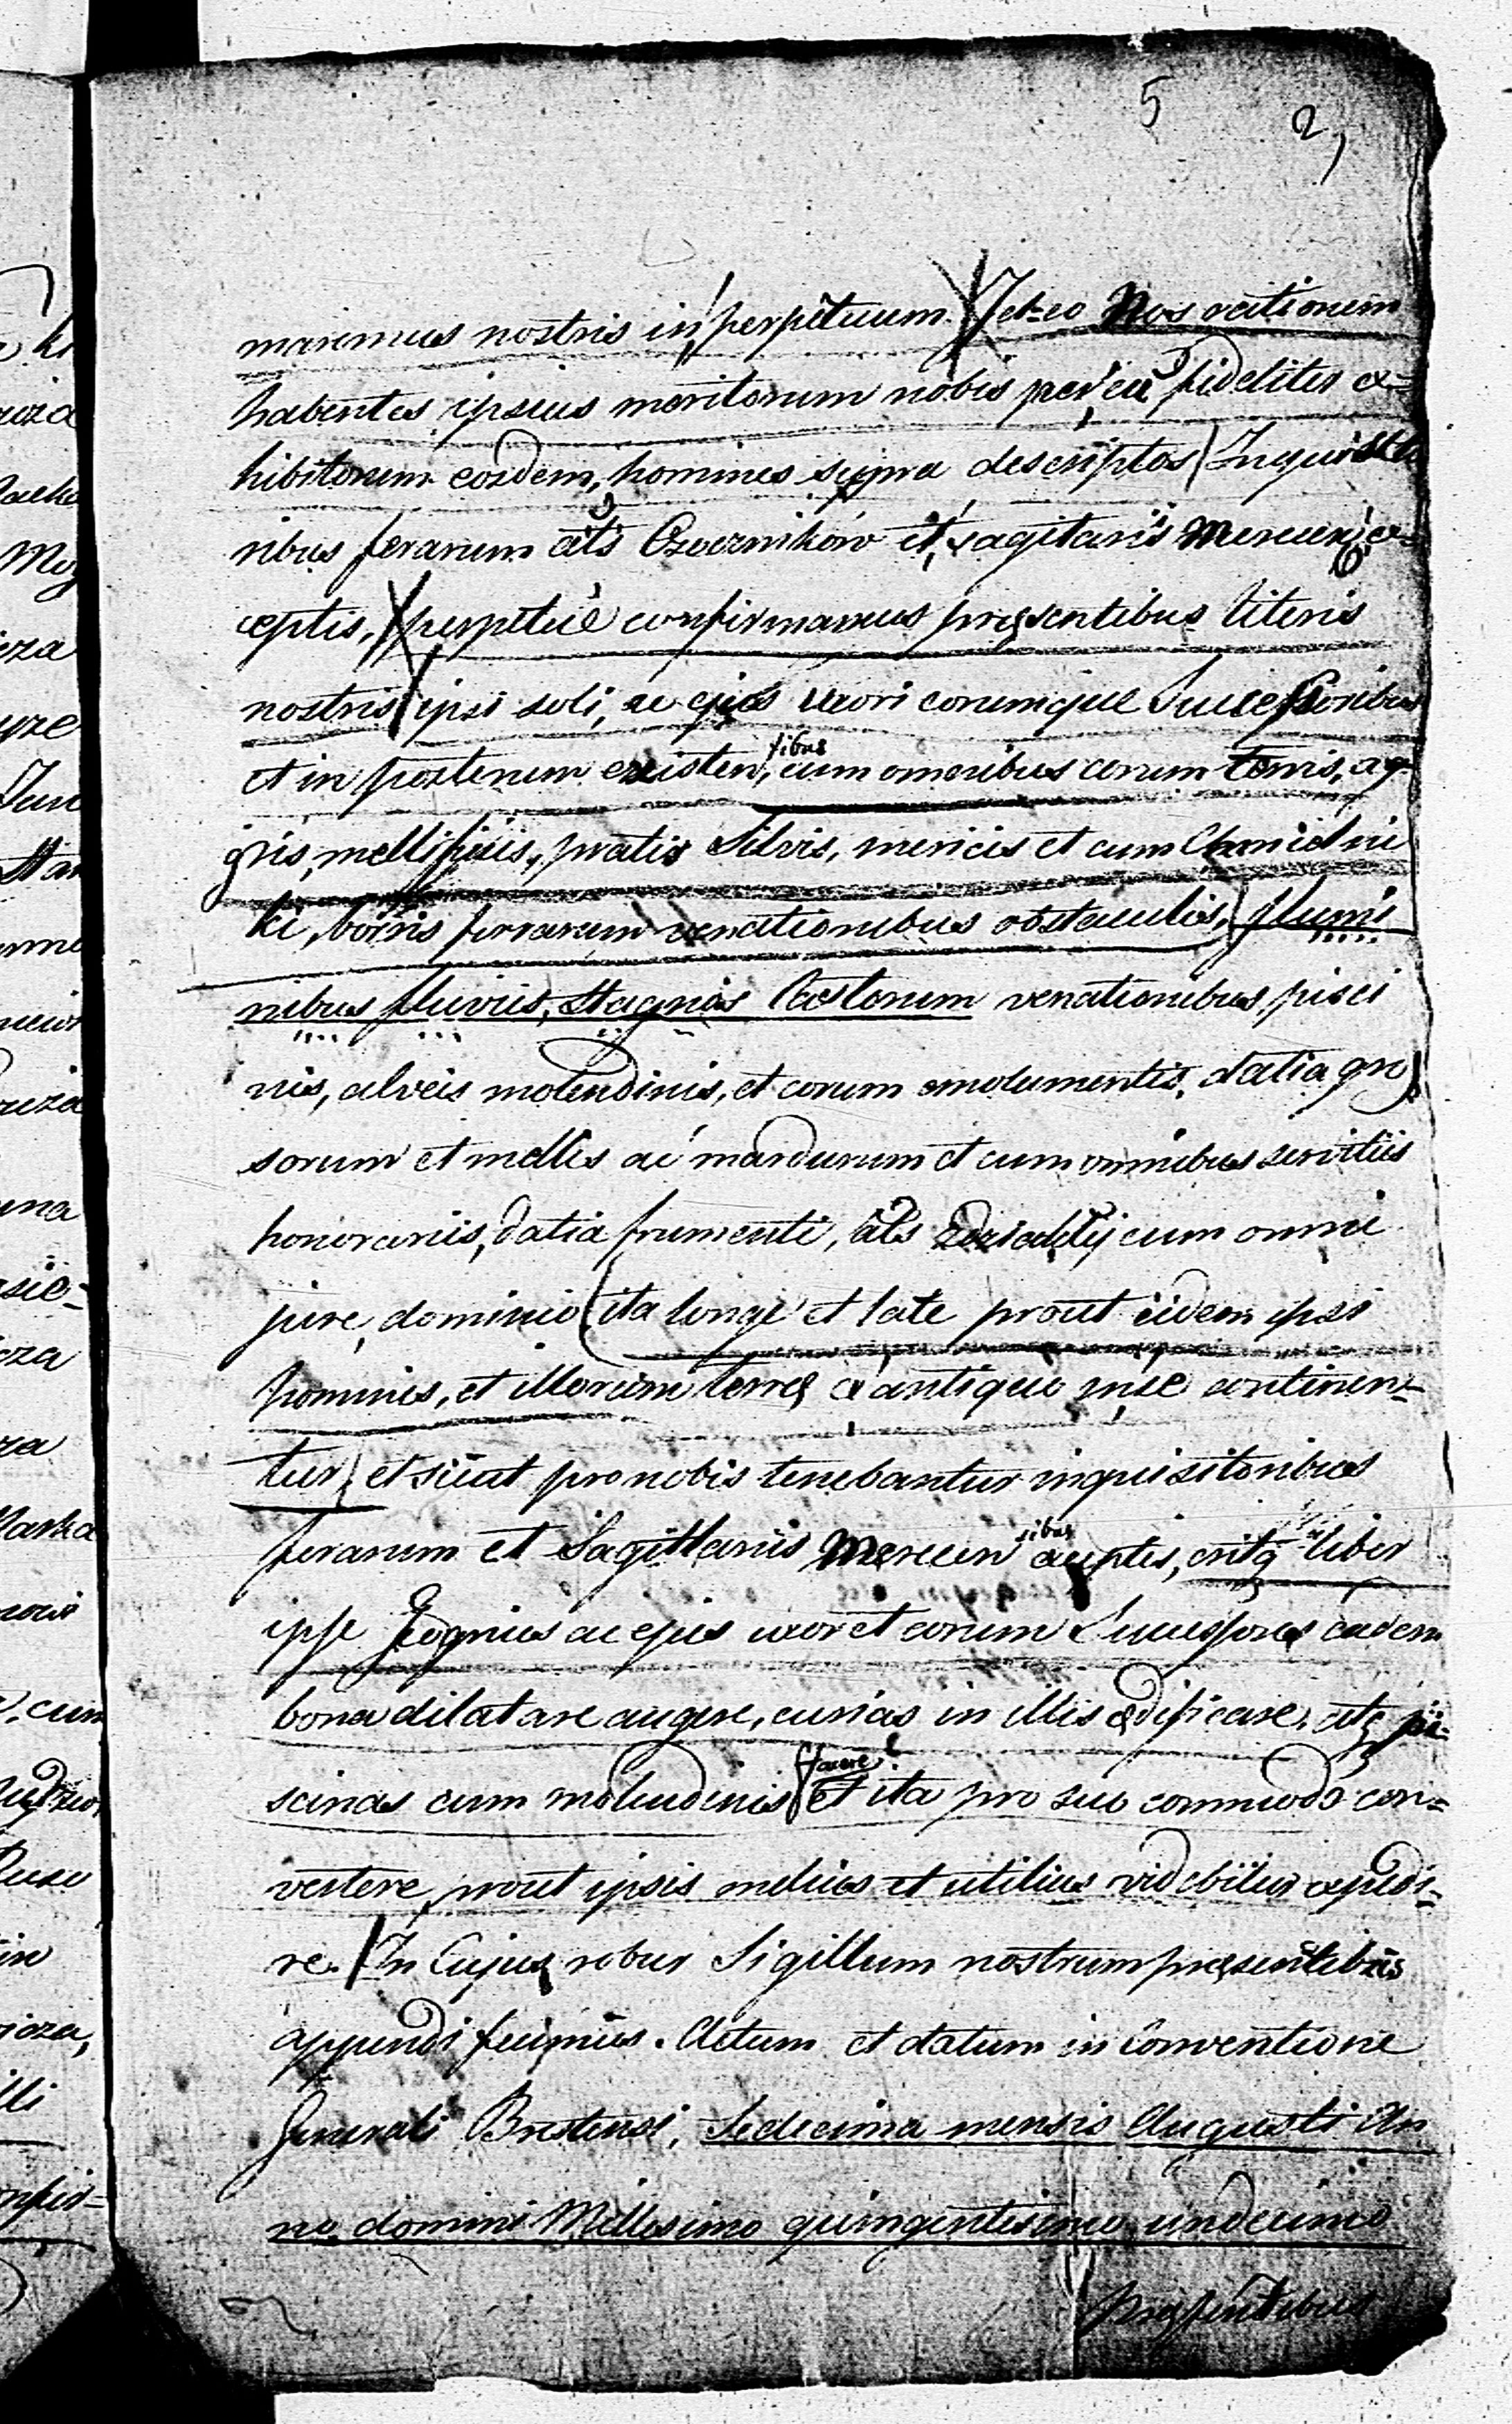 5 2,
maremus nostris in perpetuum. Et eo Nos rationem
habentes ipsius meritorum nobis per eū fideliter ex=
hibitorum eosdem, homines supra descriptos Inquisito
ribus ferarum als Czwernikow et sagitariis Mereceń: ex=
ceptis, perpetue confirmamus pręsentibus literis
nostris ipsi soli, ac ejus uxori eorumque Successoribus
et in posterum existen,tibus cum omnibus eorum terris, ag
gris, mellifisiis, pratis Silvis, mericis et cum Chmielni
ki, borris ferrarum venationibus obstaculis, flumi
nibus fluviis, stagnis Castorum venationibus, pisci
nis, alveis molendinis, et eorum emolumentis, datia gro
sorum et mellis ac mardurum et cum omnibus servitiis
honorariis, datia frumenti, als dziakły cum omni
jure, dominio ita longe et late prout iidem ipsi
homines, et illorum terrę ex antiquo in se continen=
tur, et sicut pro nobis tenebantur inquisitoribus
ferarum et Sagittariis Merecensibus exceptis, eritq liber
ipse ac ejus uxor et eorum Successores eadem
bona dilatare augere, curias in illis ędificare, atq pi=
scinas cum molendinis facere et ita pro suo commodo con=
vertere, prout ipsis melius et utilius videbitur expedi=
re. In Cujus robur Sigillum nostrum pręsentibus
appendi fecimus. Actum et datum in Conventione
Generali Brestensi, Sedecima mensis Augusti An
no domini Millesimo quingentesimo undecimo
pręsentibus